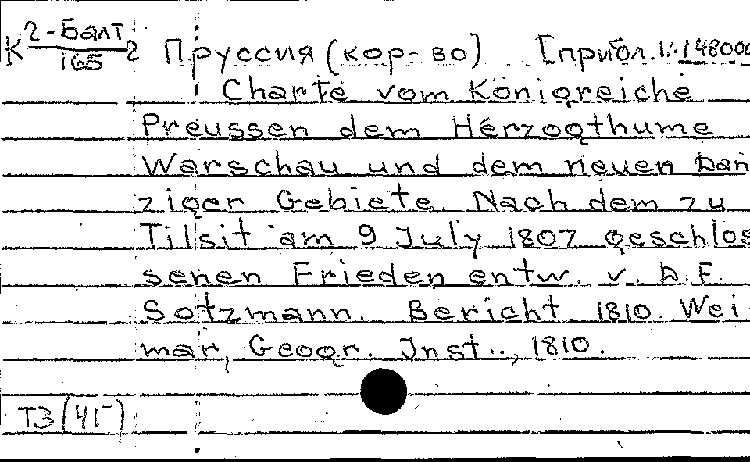 К 2-Балт/165 2 Пруссия (кор-во) [прибл. 1:148000
Charte vom Königreiche
Preussen dem Herzogthume
Warschau und dem neuen Dan
ziger Gebiete. Nach dem zu
Tilsit am 9 July 1807 geschlos
senen Frieden entw. v. D. F.
Sotzmann. Bericht 1810. Wei
mar, Geogr. Inst., 1810.
ТЗ (ЧГ)